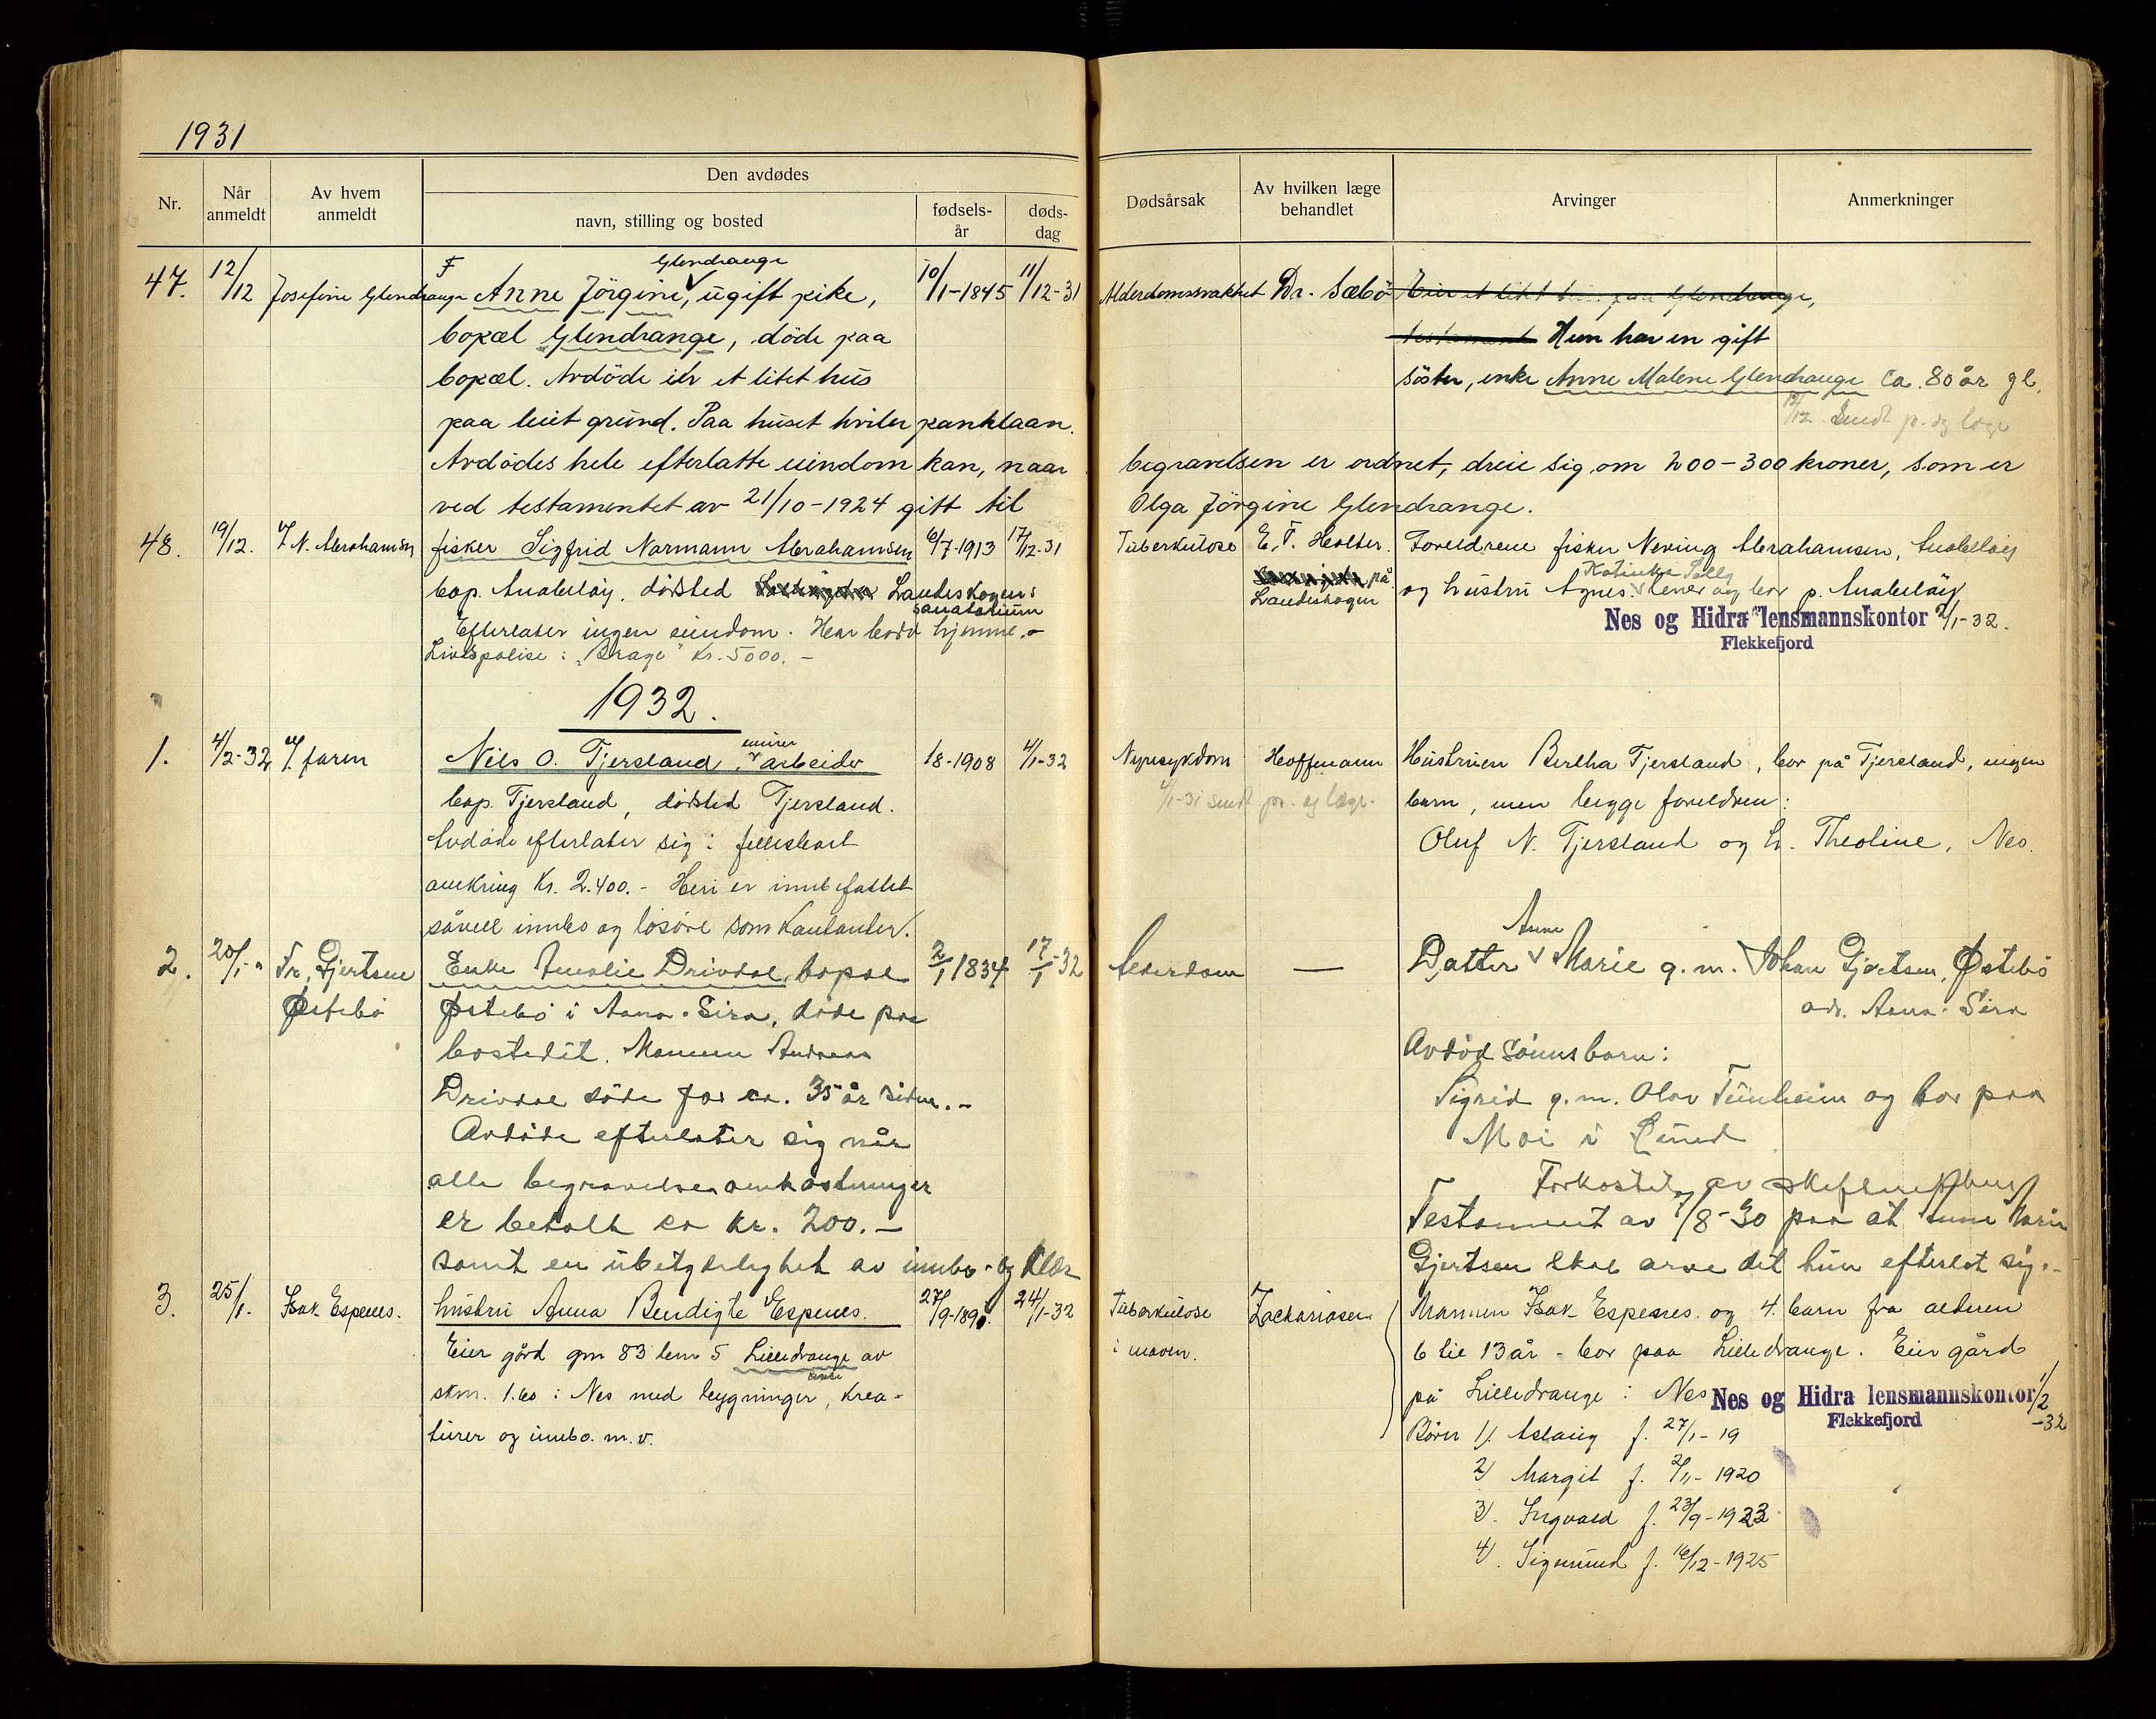 1931
Nr.
Når anmeldt
Av hvem anmeldt
Den avdødes
navn, stilling og bosted
fødsels-år
døds-dag
Dødsårsak
Av hvilken læge behandlet
Arvinger
Anmerkninger
47. 12/12 Josefine Glendrange Anne Jörgine, Glendrange ugift pike, 10/1-1845 11/12-31 Alderdomssvakhet Dr. Sæbö
bopæl Glendrange, döde paa Hun har en gift
bopæl. Avdöde eier et litet hus söster, enke Anne Malene Glendrange ca. 80 år gl.
12/12 Sendt p. og læge
paa leiet grund. Paa huset hviler panklaan.
Avdödes hele efterlatte eiendom kan, naar begravelsen er ordnet, dreie sig om 200-300 kroner, som er
ved testamentet av 21/10-1924 gitt til Olga Jörgine Glendrange.
48. 19/12. N. Abrahamsen fisker Sigfrid Normann Abrahamsen 6/7-1913 17/12-31 Tuberkulose E. F. Holter. Foreldrene fisker Nering Abrahamsen, Anabeløy
bop. Anabeløy, dødsted Landeskogens sanatorium på Landeskogen og hustru Agnes bor p. Anabeløy
Nes og Hidra lensmannskontor 2/1-32.
Flekkefjord
Efterlater ingen eiendom. Han bodde hjemme.
Livspolise: "Brage" kr. 5000.-
1932.
1. 4/2-32 v/ faren Nils O. Tjersland, minerarbeider 18-1908 4/1-32 Nyresykdom Hoffmann Hustruen Bertha Tjersland, bor på Tjersland, ingen
bop. Tjersland, dødsted Tjersland. 4/1-31 sendt pr. og læge. barn, men begge foreldrene:
Avdøde efterlater sig i fellesboet Oluf N. Tjersland og h. Theoline, Nes.
omkring Kr. 2.400.- Heri er innbefattet
såvell innbo og løsøre som kontanter.
2. 20/1 Fr. Gjertsen Enke Amalie Drivdal, bopæl 2/1 1834 17/1-32 Alderdom — Datter Anne Marie g.m. Johan Gjertsen, Østebö
Østebö Østebö i Aana-Sira, döde paa adr. Aana-Sira
bostedet. Mannen Andreas Avdöd sönnsbarn:
Drivdal döde for ca. 35 år siden.- Sigrid g.m. Olav Tunheim og bor paa
Avdöde efterlater sig når Moi i Lund
alle begravelsesomkostninger
er betalt ca kr. 200.- Testament av 7/8-30 paa at Anne Marie
samt en ubetydelighet av innbo- og klær Gjertsen skal arve det hun efterlot sig.-
3. 25/1. Isak Espenes. hustru Anna Bendigte Espenes. 27/9-189 24/1-32 Tuberkulose Zachariasen Mannen Isak Espenes og 4. barn fra alderen
Eier gård gnr 83 bnr 5 Lilledrange av i maven. 6 til 13 år - bor paa Lilledrange. Eier gård
skm. 1.60 i Nes med bygninger, krea- på Lilledrange i Nes
Nes og Hidra lensmannskontor 1/2-32
Flekkefjord
turer og innbo. m.v. Børn 1). Aslaug f. 27/1-19
2) Margit f. 2/11-1920
3). Ingvald f. 23/9-1923
4). Sigmund f. 16/12-1925